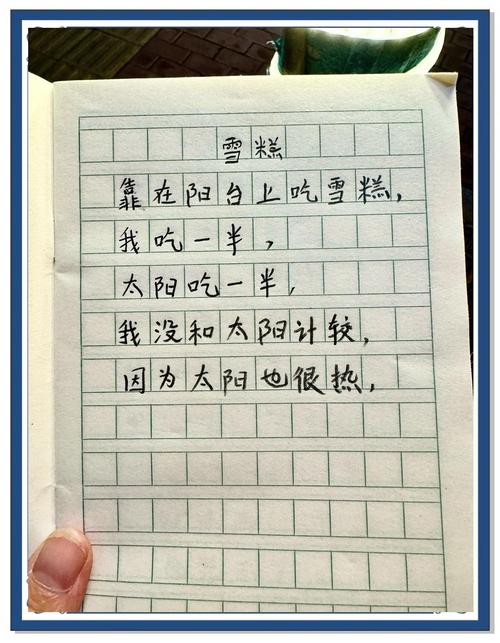 雪糕
靠在阳台上吃雪糕,
我吃一半,
太阳吃一半,
我没和太阳计较,
因为太阳也很热,